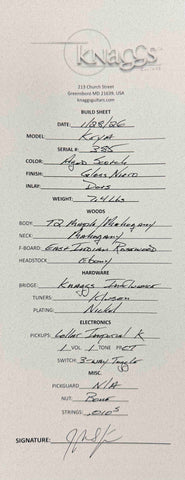 KNAGGS
GUITARS
213 Church Street
Greensboro MD 21639, USA
knaggsguitars.com
BUILD SHEET
DATE: 1/28/26
MODEL: Keya
SERIAL #: 385
COLOR: Aged Scotch
FINISH: Gloss Nitro
INLAY: Dots
WEIGHT: 7.4 lbs
WOODS
BODY: T2 Maple/Mahogany
NECK: Mahogany
F-BOARD: East Indian Rosewood
HEADSTOCK: Ebony
HARDWARE
BRIDGE: Knaggs Influence
TUNERS: Kluson
PLATING: Nickel
ELECTRONICS
PICKUPS: Lollar Imperial K
1 VOL 1 TONE
SWITCH: 3-way Toggle
MISC.
PICKGUARD N/A
NUT: Bone
STRINGS: .010s
SIGNATURE: